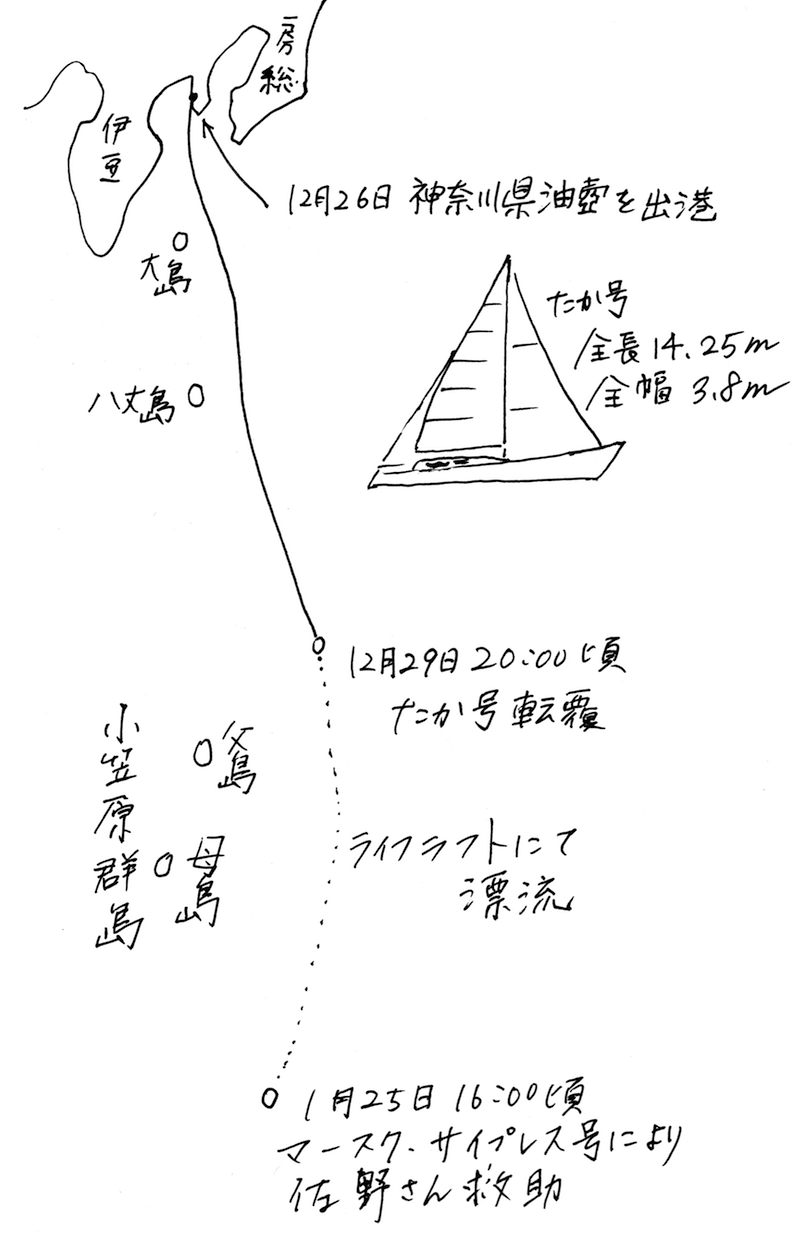 房総
伊豆
12月26日 神奈川県油壺を出港
大島
たか号
全長 14.25m
全幅 3.8m
八丈島
12月29日 20:00頃
たか号転覆
小笠原群島
父島
母島
ライフラフトにて
漂流
1月25日 16:00頃
マースク・サイプレス号により
佐野さん救助